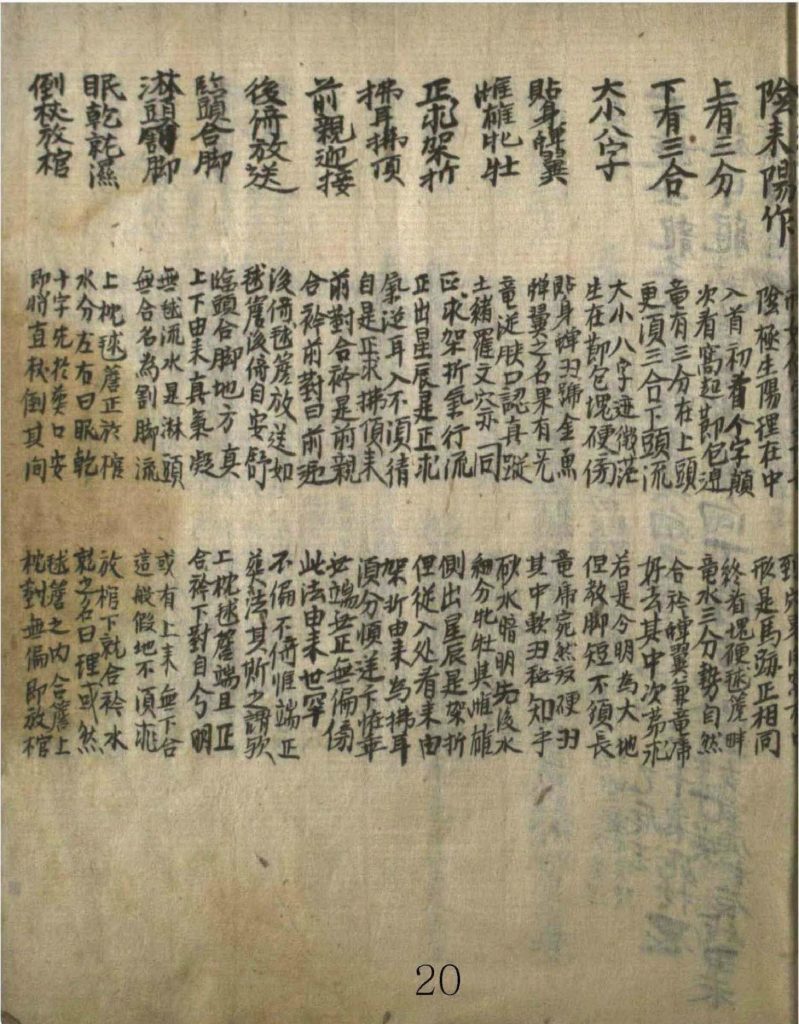 陰来陽作
陰極生陽裡在中
形是馬跡正相同
上看三分
入首初看个字顛
次看窩起節包連
終看塊硬毬簷畔
竜水三分勢自然
下有三合
竜有三分在上頭
更須三合下頭流
合衿蟬翼兼竜虎
好去其中次第求
大小八字
大小八字迹微茫
生在節包塊硬傍
若是分明為大地
但教脚短不須長
貼身蟬翼
貼身蟬羽號金魚
蟬翼之名果有光
竜虎宛然硬羽
其中軟羽秘知乎
雌雄牝牡
竜逆肤口認真蹤
土緒羅文穴亦同
水暗明先後水
細分牝牡與雌雄
正求架折
正求架折氣行流
正出星辰是正求
側出星辰是架折
但從入处看来由
拂耳拂頂
氣逆耳入不須猜
自是正求拂頂来
架折由来為拂耳
須分順逆下惟
前親迎接
前對合衿是前親
合衿前對曰前迎
無端無正無偏倚
此法由来世罕
後倚放送
後倚毬簷放送如
毬簷後倚自安舒
不偏不倚惟端正
葬法其斯之謂歟
臨頭合脚
臨頭合脚地方真
上下由来真氣凝
上枕毬簷端且正
合衿下對自分明
淋頭割脚
無毬流水是淋頭
無合名為割脚流
或有上来無下合
這般假地不須求
眠乾就濕
上枕毬簷正於棺
水分左右曰眠乾
放棺下就合衿水
就之名曰理或然
倒杖放棺
十字先於葬口安
即將直杖倒其间
毬簷之内合簷上
枕對無偏即放棺
20